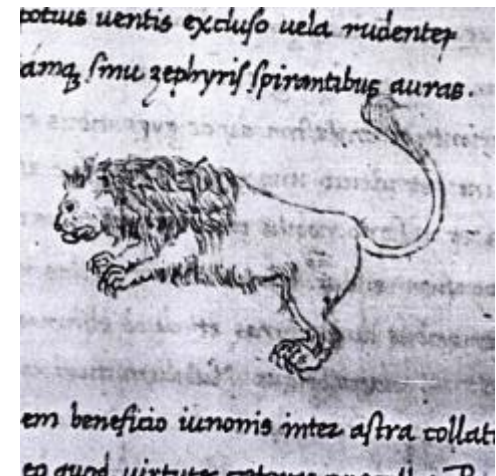 totius uentis excluso uela rudenter
iamq, sinu zephyris spirantibus auras.
em beneficio iunonis inter astra collati
eo quod uirtutes